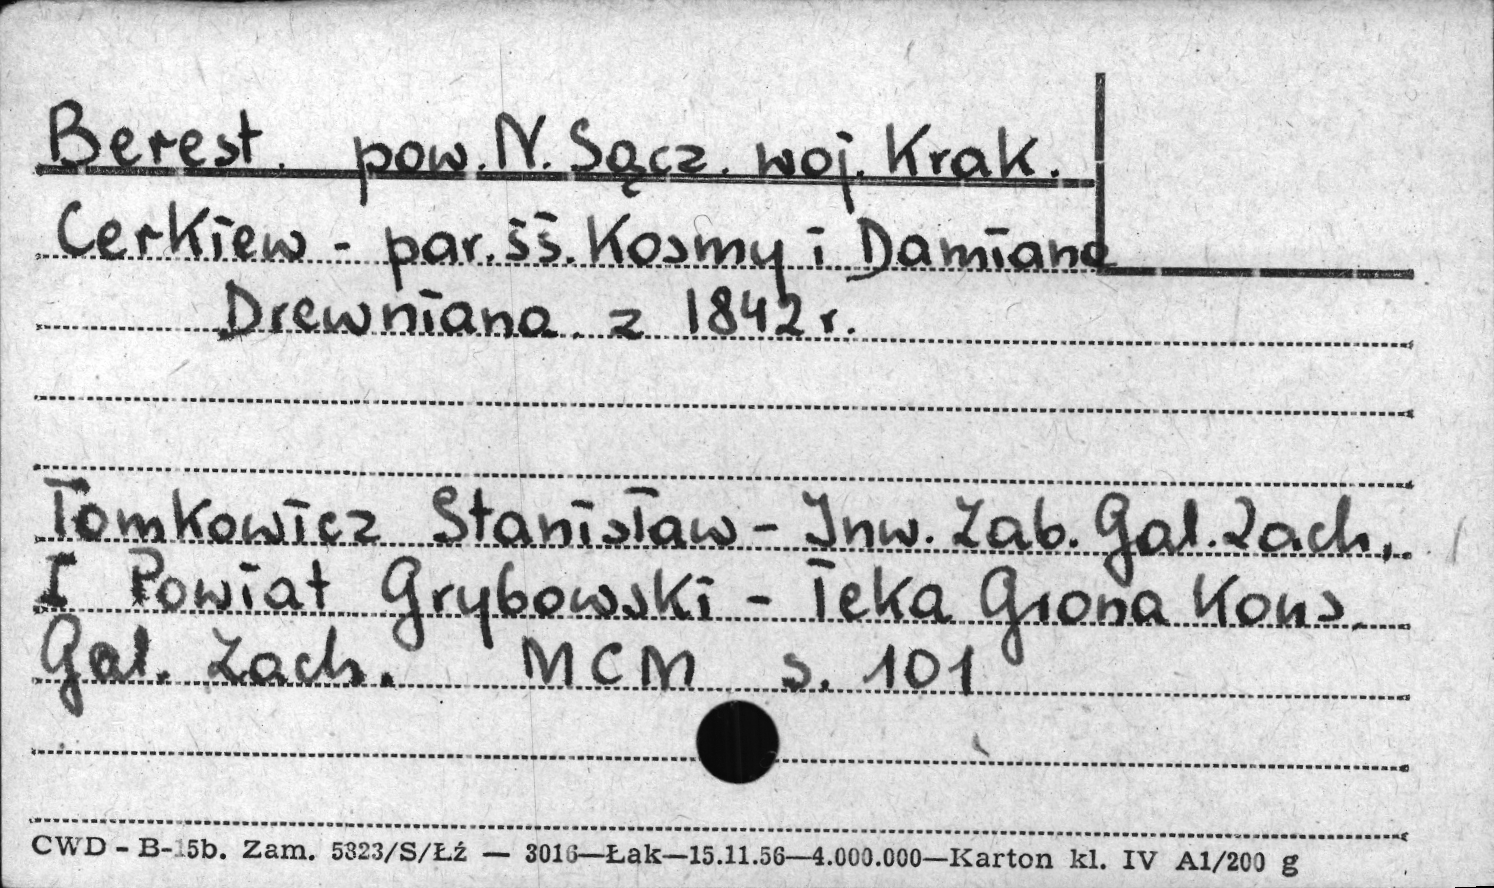 Berest. pow. N. Sącz. woj. Krak.
Cerkiew - par. śś. Kosmy i Damiana
Drewniana z 1842 r.
Tomkowicz Stanisław - Inw. Zab. Gal. Zach.
I Powiat Grybowski - Teka Grona Kons.
Gal. Zach. MCM s. 101
CWD - B-15b. Zam. 5823/S/Łź — 3016—Łak—15.11.56—4.000.000—Karton kl. IV A1/200 g